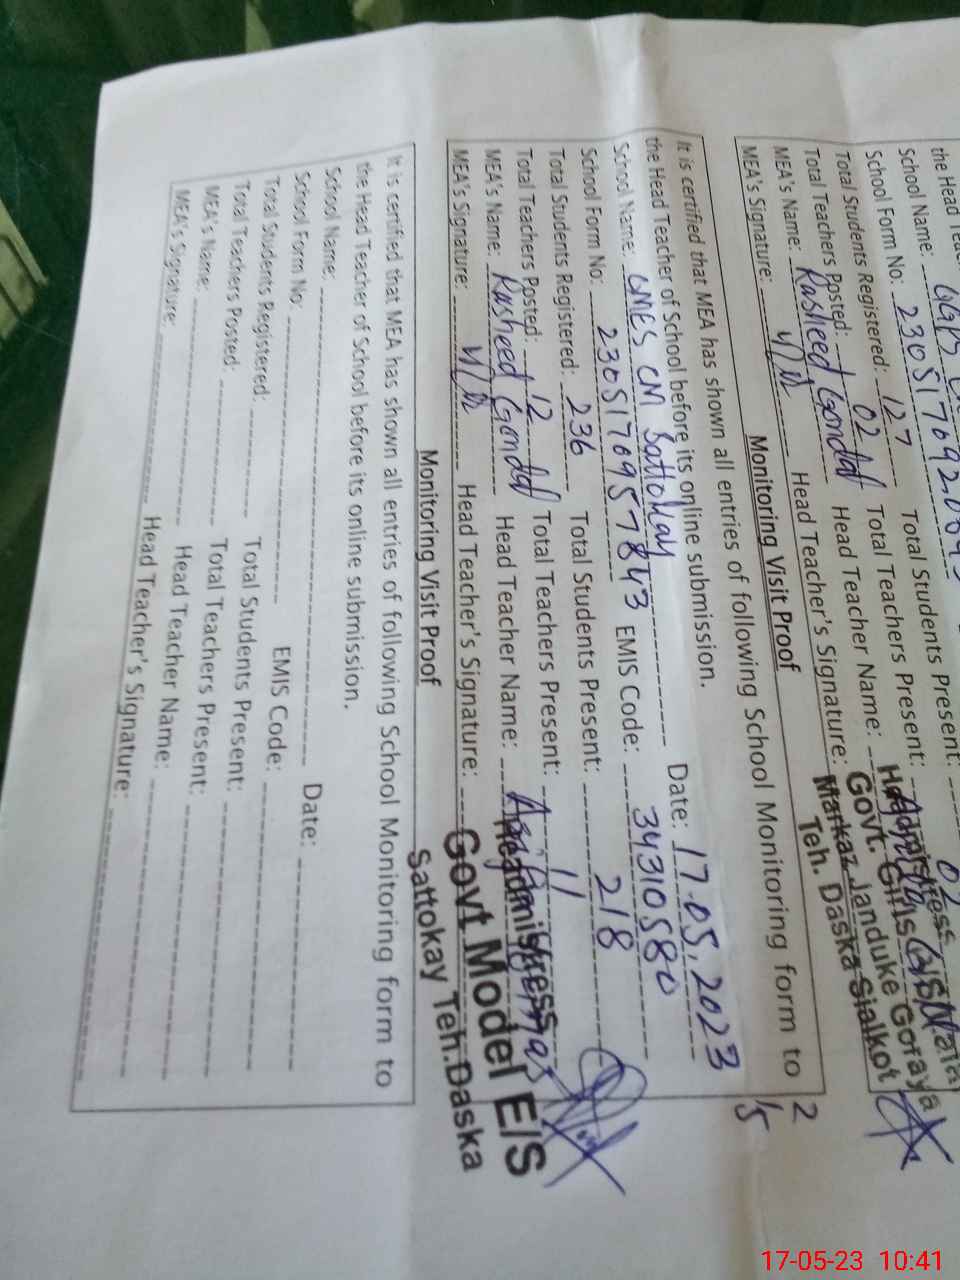 the Head
School Name: GGPS
School Form No: 23051769
Total Students Registered: 127 Total Students Present:
Total Teachers Posted: 02 Total Teachers Present: 02
MEA's Name: Rasheed Gondal Head Teacher Name:
MEA's Signature: Head Teacher's Signature:
Headmistress
Govt. Girls
Markaz Janduke Goraya
Teh. Daska Sialkot
Monitoring Visit Proof
2
15
It is certified that MEA has shown all entries of following School Monitoring form to
the Head Teacher of School before its online submission.
School Name: GMES CM Sattokay Date: 17.05.2023
School Form No: 2305176957843 EMIS Code: 34310580
Total Students Registered: 236 Total Students Present: 218
Total Teachers Posted: 12 Total Teachers Present: 11
MEA's Name: Rasheed Gondal Head Teacher Name:
MEA's Signature: Head Teacher's Signature:
Headmistress
Govt Model E/S
Sattokay Teh.Daska
Monitoring Visit Proof
It is certified that MEA has shown all entries of following School Monitoring form to
the Head Teacher of School before its online submission.
School Name: Date:
School Form No: EMIS Code:
Total Students Registered: Total Students Present:
Total Teachers Posted: Total Teachers Present:
MEA's Name: Head Teacher Name:
MEA's Signature: Head Teacher's Signature:
17-05-23 10:41